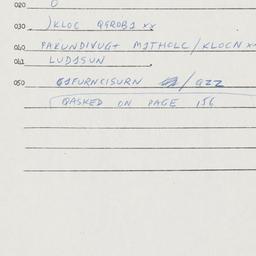 020 O
030 )KLOC QGROB1 xx
040 PAKUNDIVUG+ MITHOLC/KLOCN x
041 LUD1SUN
050 FURNCISURN /QZZ
QASKED ON PAGE 156